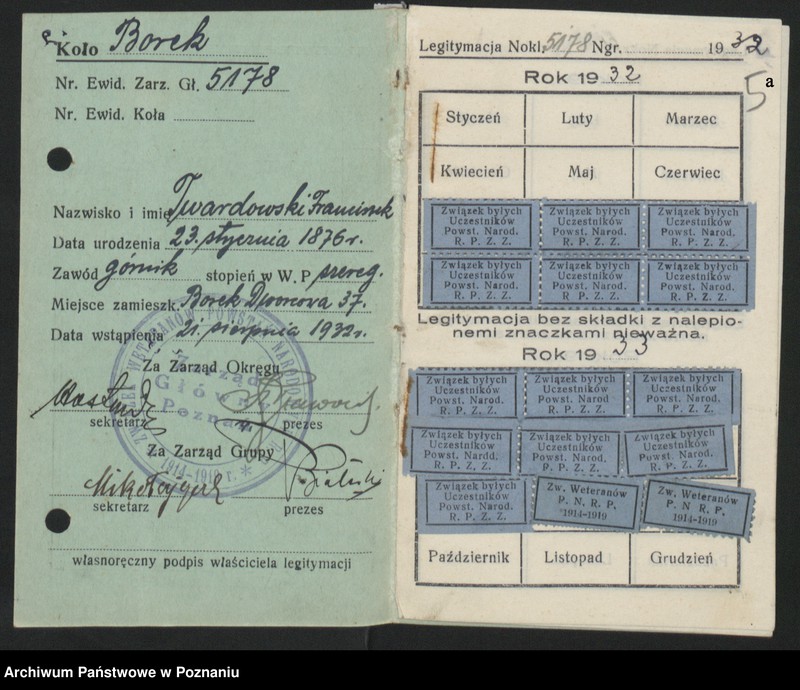 Koło Borek
Nr. Ewid. Zarz. Gł. 5178
Nr. Ewid. Koła
Nazwisko i imię Twardowski Franciszek
Data urodzenia 23. stycznia 1876 r.
Zawód górnik stopień w W. P. szereg.
Miejsce zamieszk. Borek Dworcova 37.
Data wstąpienia 21. sierpnia 1932 r.
Za Zarząd Okręgu
sekretarz prezes
Za Zarząd Grupy
sekretarz prezes
własnoręczny podpis właściciela legitymacji
Zarząd
Główny
Poznań
1914-1919 r.
Legitymacja No kl. 5178 Ngr. 1932
Rok 1932
5 a
Styczeń Luty Marzec
Kwiecień Maj Czerwiec
Związek byłych Uczestników Powst. Narod. R. P. Z. Z.
Związek byłych Uczestników Powst. Narod. R. P. Z. Z.
Związek byłych Uczestników Powst. Narod. R. P. Z. Z.
Związek byłych Uczestników Powst. Narod. R. P. Z. Z.
Związek byłych Uczestników Powst. Narod. R. P. Z. Z.
Związek byłych Uczestników Powst. Narod. R. P. Z. Z.
Legitymacja bez składki z nalepio-
nemi znaczkami nieważna.
Rok 1933
Związek byłych Uczestników Powst. Narod. R. P. Z. Z.
Związek byłych Uczestników Powst. Narod. R. P. Z. Z.
Związek byłych Uczestników Powst. Narod. R. P. Z. Z.
Związek byłych Uczestników Powst. Narod. R. P. Z. Z.
Związek byłych Uczestników Powst. Narod. R. P. Z. Z.
Związek byłych Uczestników Powst. Narod. R. P. Z. Z.
Związek byłych Uczestników Powst. Narod. R. P. Z. Z.
Zw. Weteranów P. N. R. P. 1914-1919
Zw. Weteranów P. N. R. P. 1914-1919
Październik Listopad Grudzień
Archiwum Państwowe w Poznaniu